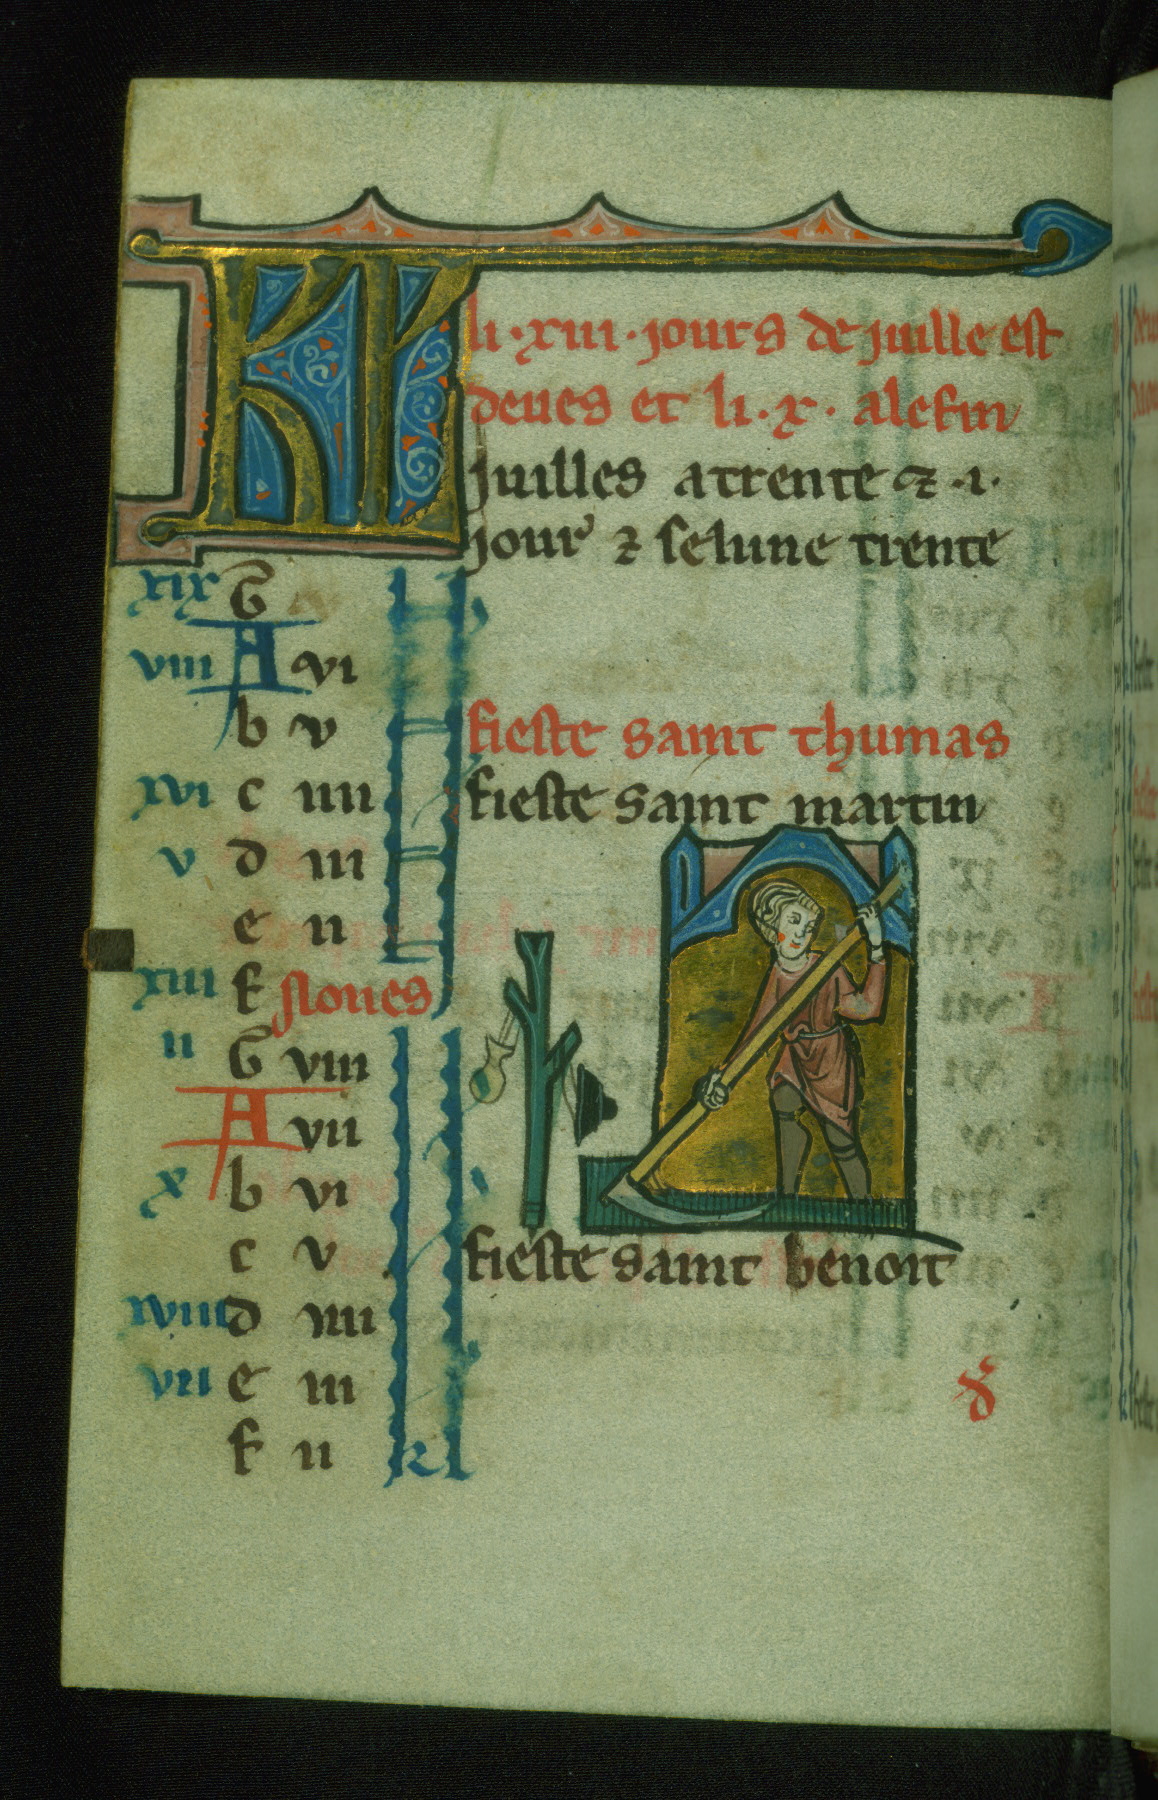 KL li · xiii · jours de juille est
deues et li · x · alefin
Juilles a trente ⁊ · i ·
jour' ⁊ selune trente
xix G
viii A vi
b v fieste saint thumas
xvi c iiii fieste saint martin
v d iii
e ii
xiii f nones
ii G viii
A vii
x b vi
c v fieste saint benoit
xviii d iiii
vii e iii
f ii